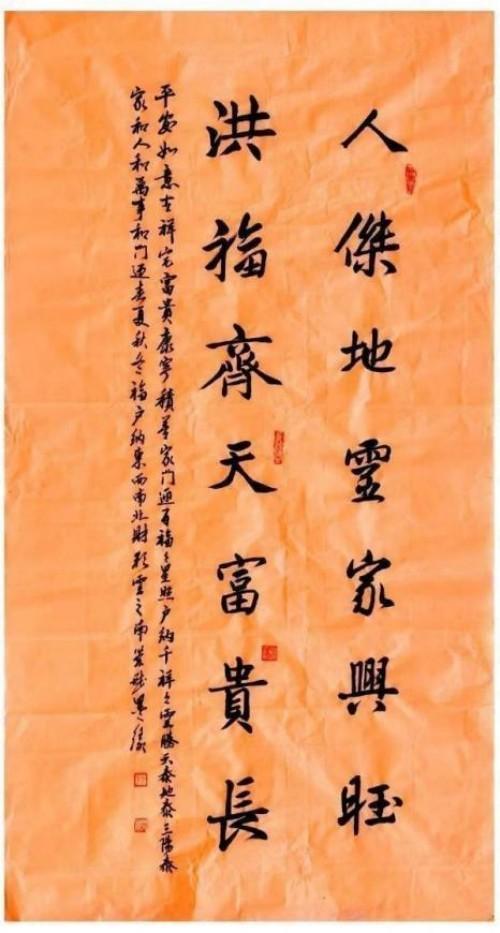 人傑地霊家興旺
洪福齊天富貴長
平安如意吉祥宅富貴康寧積善家門迎百福々星照户納千祥々雲騰天泰地泰三陽泰
家和人和萬事和門迎春夏秋冬福户納東西南北財彩雲之南